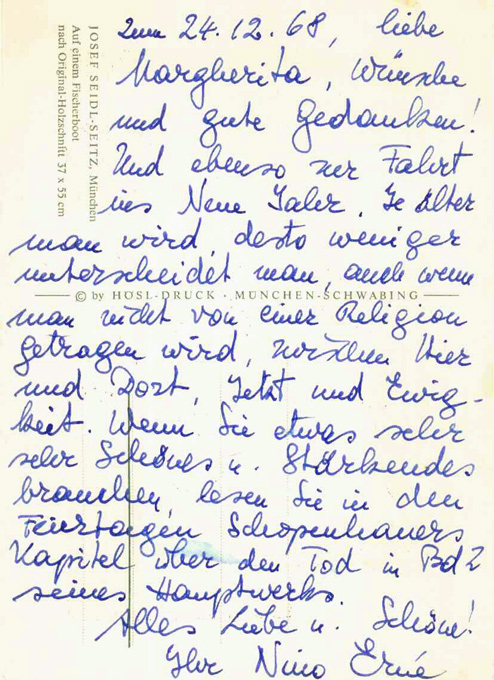 JOSEF SEIDL-SEITZ, München
Auf einem Fischerboot
nach Original-Holzschnitt 37 x 55 cm
Zum 24.12.68, liebe
Margherita, Wünsche
und gute Gedanken!
Und ebenso zur Fahrt
ins Neue Jahr. Je älter
man wird, desto weniger
unterscheidet man, auch wenn
© by HÖSL-DRUCK · MÜNCHEN-SCHWABING
man nicht von einer Religion
getragen wird, zwischen Hier
und Dort, Jetzt und Ewig-
keit. Wenn Sie etwas sehr
sehr Schönes u. Stärkendes
brauchen, lesen Sie in den
Feiertagen Schopenhauers
Kapitel über den Tod in Bd 2
seines Hauptwerks.
Alles Liebe u. Schöne!
Ihr Nino Erné